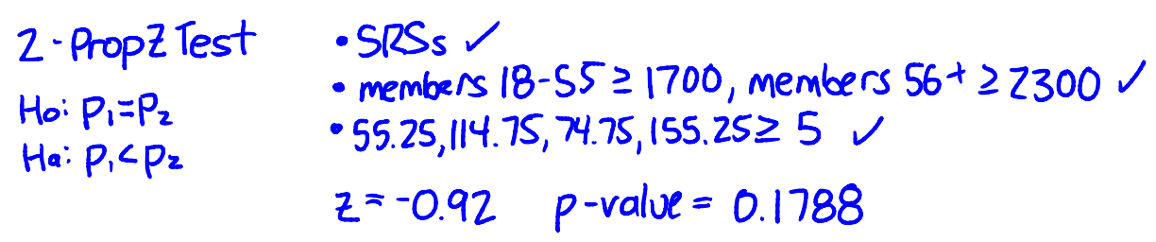 2-PropZTest
Ho: p₁=p₂
Ha: p₁<p₂
• SRSs ✓
• members 18-55 ≥ 1700, members 56+ ≥ 2300 ✓
• 55.25, 114.75, 74.75, 155.25 ≥ 5 ✓
z = -0.92 p-value = 0.1788